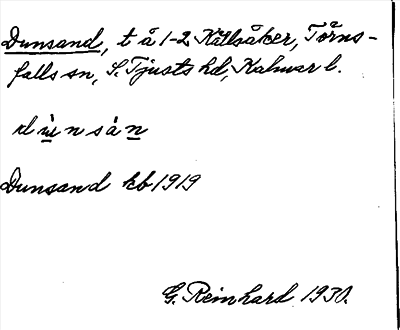 Dunsand, t å 1-2 Källsåker, Törns-
falls sn, S. Tjusts hd, Kalmar l.
dùnsán
Dunsand kb 1919
G. Reinhard 1930.